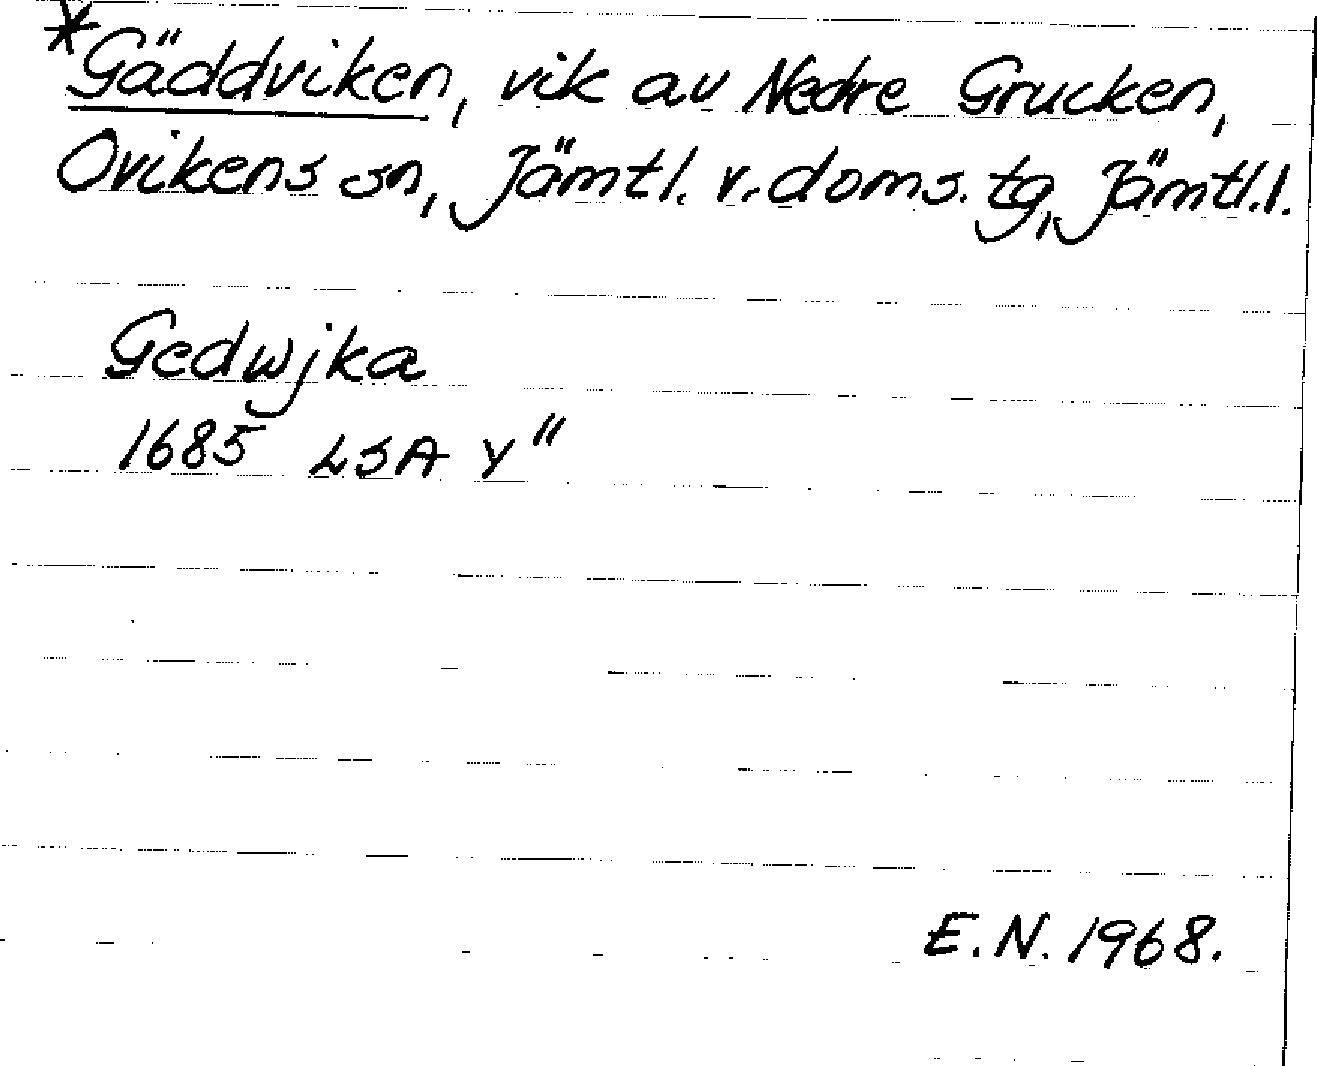 *Gäddviken, vik av Nedre Grucken,
Ovikens sn, Jämtl. v. doms. tg, Jämtl.l.
Gedwjka
1685 LSA Y"
E.N. 1968.